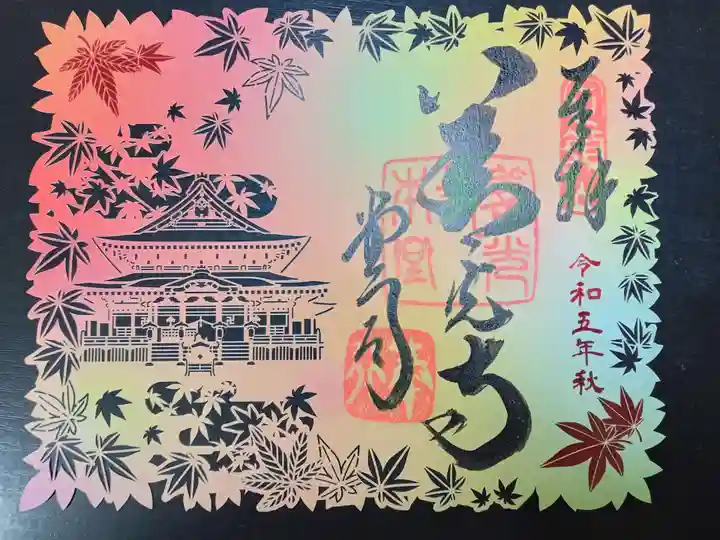 奉拝
令和五年秋
善光寺
堂司